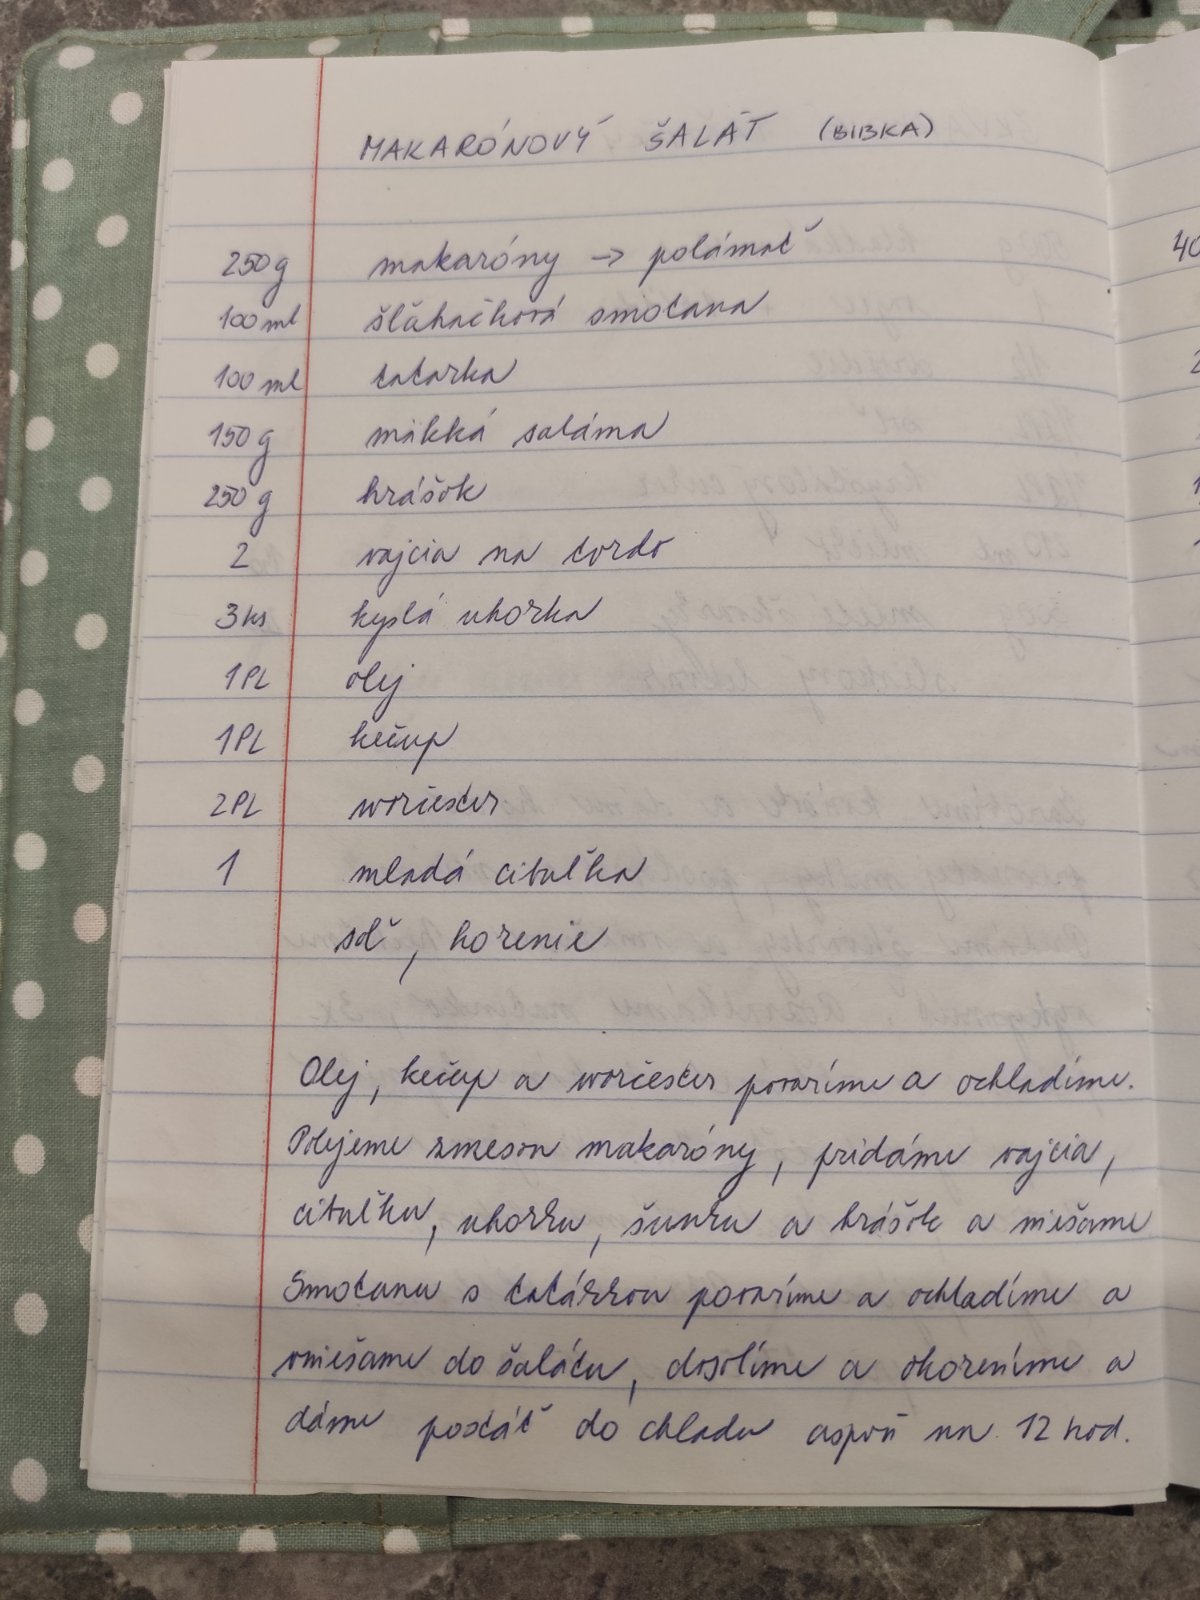 MAKARÓNOVÝ ŠALÁT (BIBKA)
250g makaróny -> polámať
100 ml šľahačková smotana
100 ml tatarka
150 g mäkká saláma
250 g hrášok
2 vajcia na tvrdo
3 ks kyslá uhorka
1 PL olej
1 PL kečup
2 PL worčester
1 mladá cibuľka
soľ, korenie
Olej, kečup a worčester povaríme a ochladíme.
Polejeme zmesou makaróny, pridáme vajcia,
cibuľku, uhorku, šunku a hrášok a miešame
Smotanu s tatárkou povaríme a ochladíme a
vmiešame do šalátu, dosolíme a okoreníme a
dáme postáť do chladu aspoň na 12 hod.
40